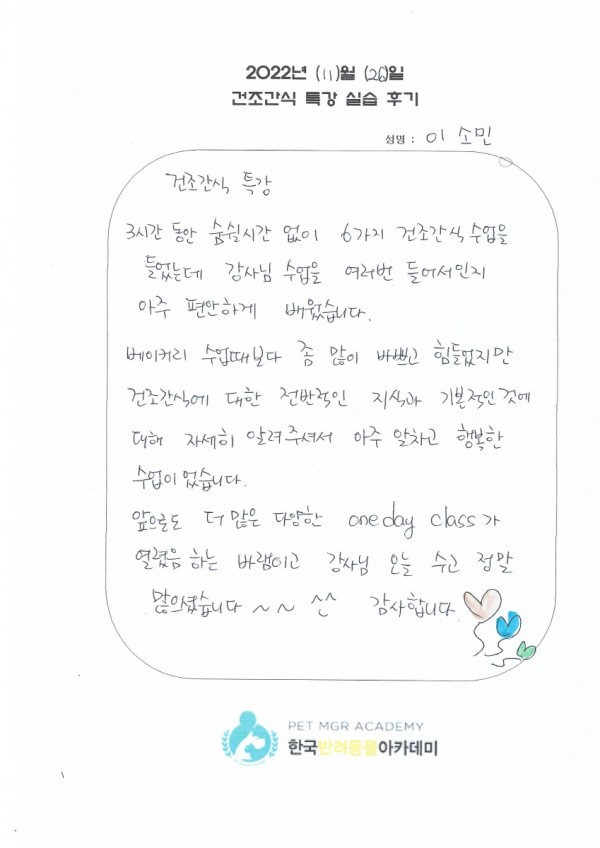 2022년 (11)월 (26)일
건조간식 특강 실습 후기
성명 : 이 소민
건조간식 특강
3시간 동안 숨쉴시간 없이 6가지 건조간식 수업을
들었는데 강사님 수업을 여러번 들어서인지
아주 편안하게 배웠습니다.
베이커리 수업때보다 좀 많이 바쁘고 힘들었지만
건조간식에 대한 전반적인 지식과 기본적인것에
대해 자세히 알려주셔서 아주 알차고 행복한
수업이었습니다.
앞으로도 더 많은 다양한 oneday class가
열렸음 하는 바램이고 강사님 오늘 수고 정말
많으셨습니다 ~ ~ ^^ 감사합니다
PET MGR ACADEMY
한국반려동물아카데미